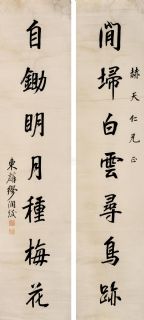 赫天仁兄正
閒埽白雲尋鳥跡
自鋤明月種梅花
東 繆潤紱